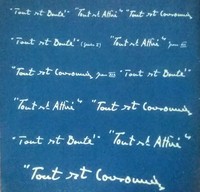 "Tout est Douté" "Tout est Affiné" "Tout est Couronné
"Tout est Douté" "Tout est Affiné"
"Tout est Couronné "Tout est Douté"
"Tout est Affiné" "Tout est Couronné
"Tout est Douté" "Tout est Affiné"
"Tout est Couronné